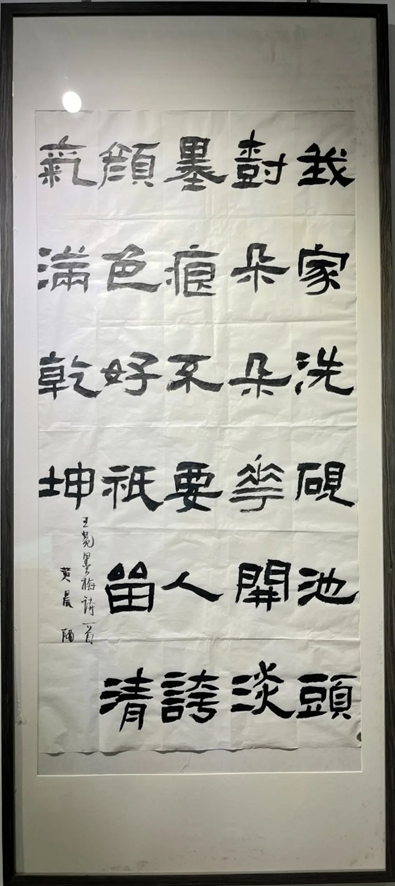 我家洗硯池頭
樹朵朵花開淡
墨痕不要人誇
顏色好祇留清
氣滿乾坤
王冕墨梅詩一首
黄晨